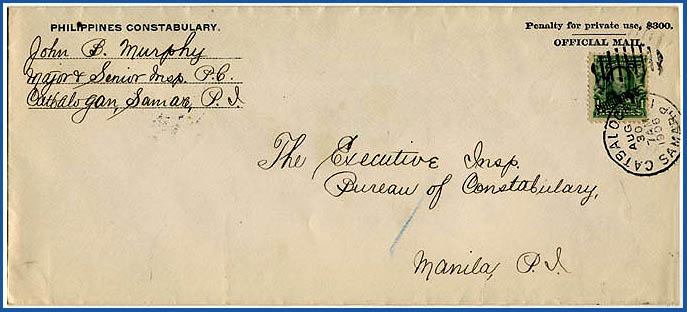 PHILIPPINES CONSTABULARY.
John B. Murphy
Major & Senior Insp. P.C.
Catbalogan, Samar, P. I.
Penalty for private use, $300.
OFFICIAL MAIL.
CATBALOGAN SAMAR P. I.
AUG
30
7AM
1906
The Executive Insp.
Bureau of Constabulary,
Manila, P. I.